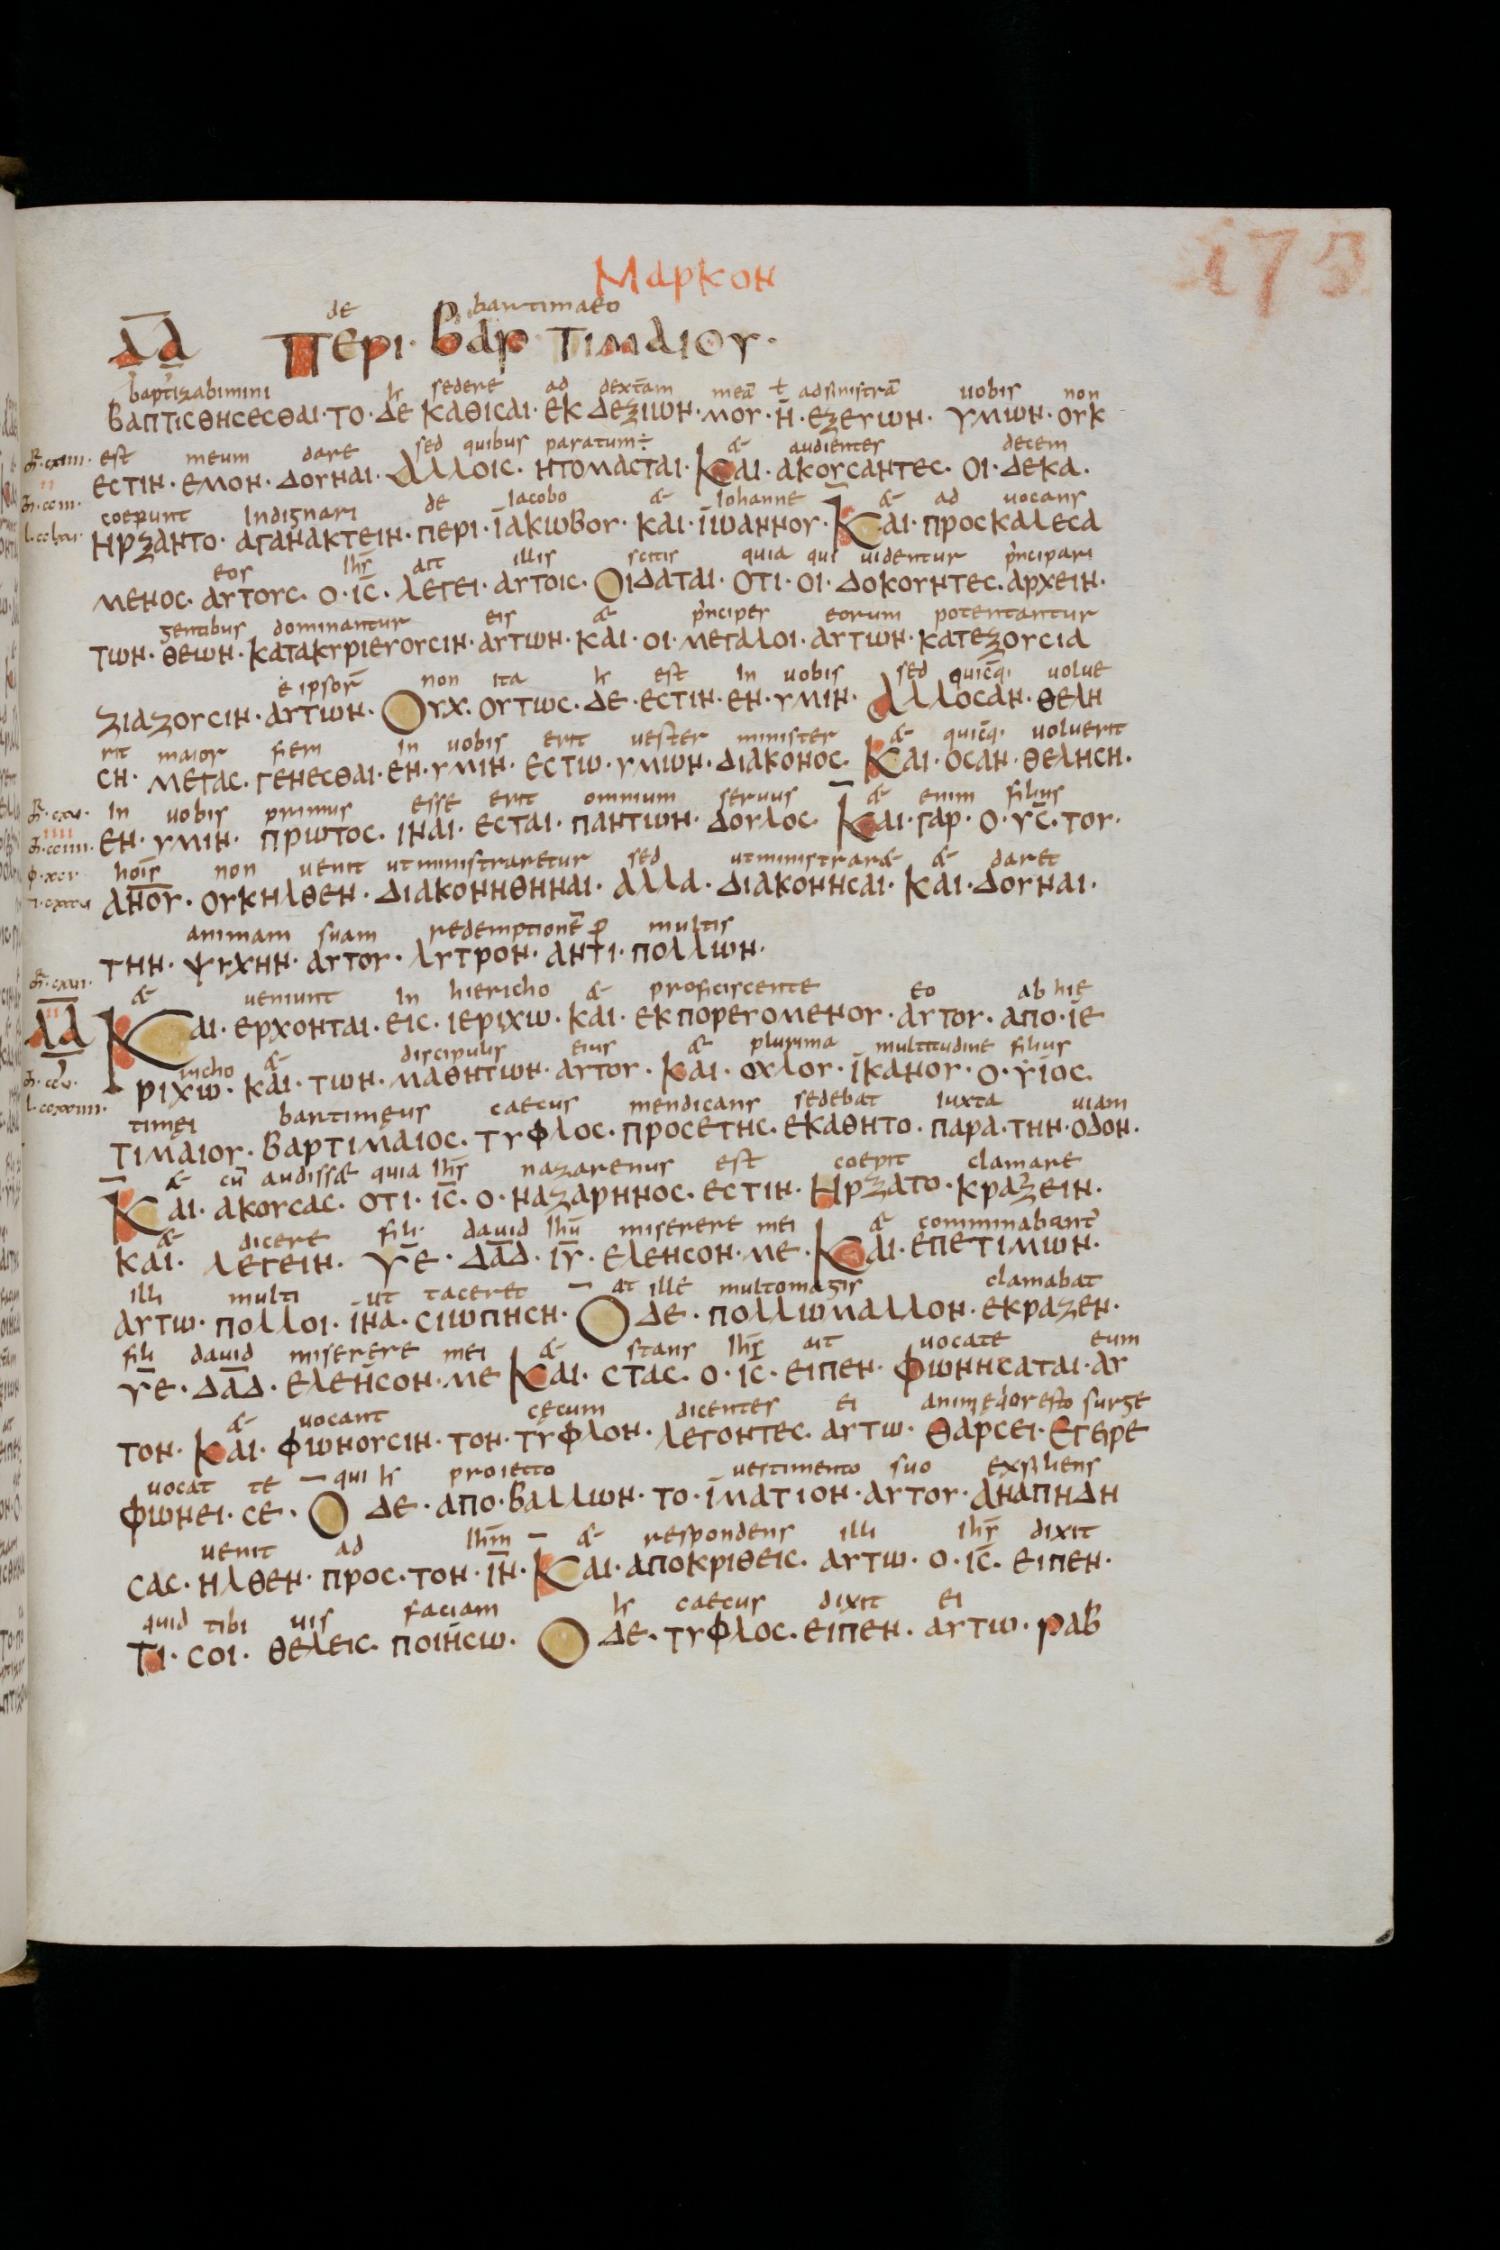 Μαρκον
173
de bartimaeo
λ̅α̅ Περι· βαρ τιμαιου·
baptizabimini h sedere ad dextram meā ł adsinistrā uobis non
βαπτιcθηcεcθαι· το· δε καθιcαι· εκ δεζιων· μου· η· εζευων· υμων· ουκ
est meum dare sed quibus paratum÷ & audientes decem
εcτιν· εμον· δουναι· αλλοιc· ητομαcται· Και· ακουcαντεc· οι· δεκα·
coeperunt Indignari de Iacobo & Iohanne & ad uocans
ηρζαντο· αγανακτειν· περι· ϊακωβου· και· ϊωαννου· Και· προcκαλεcα
eos ihs ait illis scitis quia qui uidentur principari
μενοc· αυτουc· ο· ιc̅· λεγει· αυτοιc· Οιδαται· οτι· οι· δοκουντεc· αρχειν·
gentibus dominantur eis & principes eorum potentantur
των· θεων· κατακυριευουcιν· αυτων· και· οι· μεγαλοι· αυτων· κατεζουcια
& ipsorum non ita h est In uobis sed quicq· uolue
ζιαζουcιν· αυτων· Ουχ· ουτωc· δε· εcτιν· εν· υμιν· αλλοcαν· θελη
rit maior fieri in uobis erit uester minister & quicq· uoluerit
cη· μεγαc· γενεcθαι· εν· υμιν· εcτω· υμων· διακονοc· Και· οcαν· θεληcη·
In uobis primus esse erit omnium seruus & enim filius
εν· υμιν· πρωτοc· ιναι· εcται· παντων· δουλοc· Και· γαρ· ο· υc̅· του·
hois non uenit utministraretur sed utministrar& & daret
ανο̅υ· ουκηλθεν· διακονηθηναι· αλλα· διακονηcαι· και· δουναι·
animam suam redemptionē p multis
την· ψυχην· αυτου· λυτρον· αντι· πολλων·
& ueniunt In hiericho & proficiscente eo ab hie
Και· ερχονται· ειc· ιεριχω· και· εκπορευομενου· αυτου· απο· ϊε
richo & discipulis eius & plurima multitudine filius
ριχω· και· των· μαθητων· αυτου· και· οχλου· ϊκανου· ο· υϊοc
timei bartimeus caecus mendicans sedebat iuxta uiam
τιμαιου· βαρτιμαιοc· τυφλοc· προcετηc· εκαθητο· παρα· την· οδον·
& cū audiss& quia ihs nazarenus est coepit clamare
Και· ακουcαc· οτι· ιc̅· ο· ναζαρηνοc· εcτιν· Ηρζατο· κραζειν·
& dicere fili· dauid ihu miserere mei & comminabant
και· λεγειν· υε̅· δα̅δ· ιυ̅· ελεηcον· με· Και· επετιμων·
illi multi ut taceret at ille multomagis clamabat
αυτω· πολλοι· ϊνα· cιωπηcη· Ο δε· πολλωμαλλον· εκραζεν·
fili dauid miserere mei & stans ihs ait uocate eum
υε̅· δα̅δ· ελεηcον· με Και· cταc· ο· ιc̅· ειπεν· φωνηcαται· αυ
& uocant cęcum dicentes ei animędor esto surge
τον· και· φωνουcιν· τον· τυφλον· λεγοντεc· αυτω· θαρcει· Εγειρε
uocat te qui h proiecto uestimento suo exsiliens
φωνει· cε· Ο δε· απο·βαλλων· το· ϊματιον· αυτου· αναπηδη
uenit ad ihm & respondens illi ihs dixit
cαc· ηλθεν· προc· τον· ιν̅· Και· αποκριθειc· αυτω· ο· ιc̅· ειπεν·
quid tibi uis faciam h caecus dixit ei
Τι· cοι· θελειc· ποιηcω· Ο δε· τυφλοc· ειπεν· αυτω· ραβ